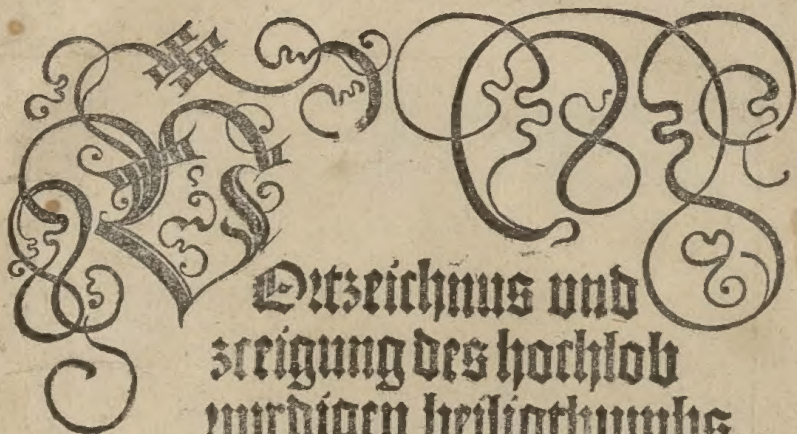 VOrtzeichnus und
zceigung des hochlob
wirdigen heiligthumbs